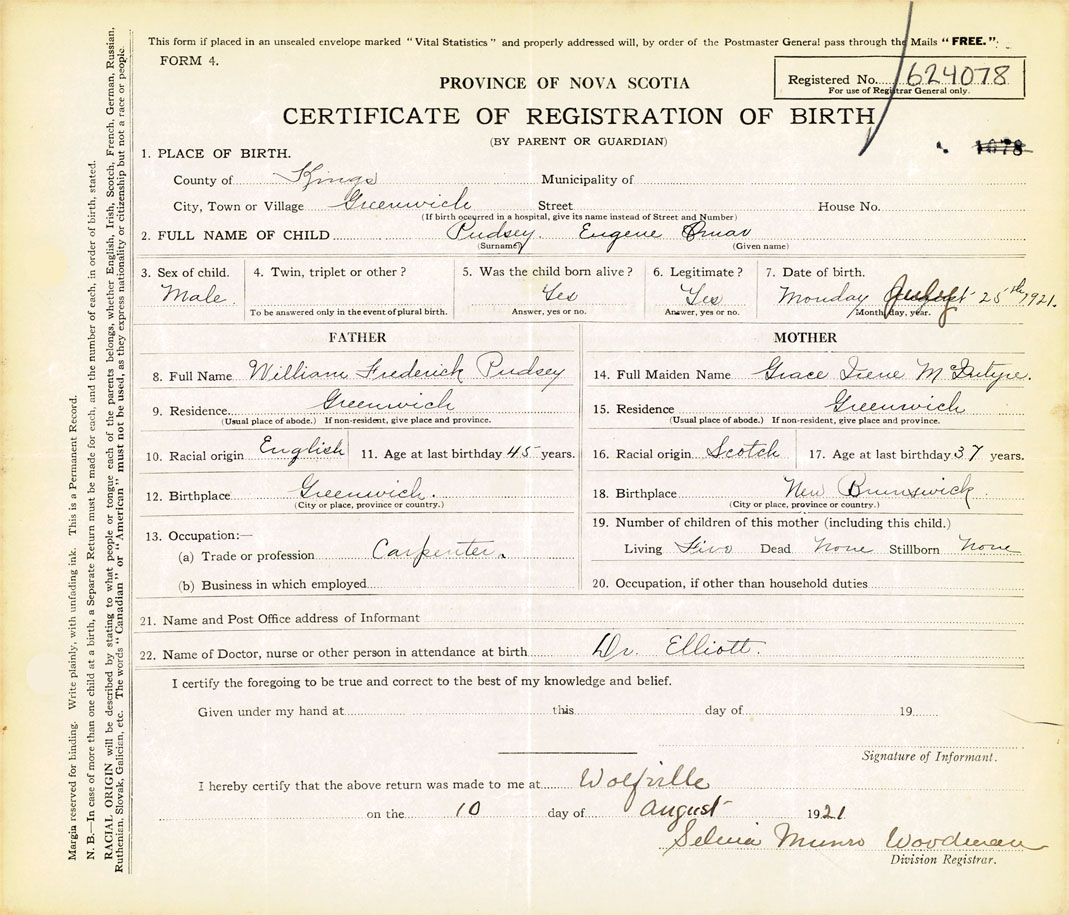 This form if placed in an unsealed envelope marked "Vital Statistics" and properly addressed will, by order of the Postmaster General pass through the Mails "FREE."
FORM 4.
Registered No. 624078
For use of Registrar General only.
PROVINCE OF NOVA SCOTIA
CERTIFICATE OF REGISTRATION OF BIRTH
(BY PARENT OR GUARDIAN)
1678
1. PLACE OF BIRTH.
County of Kings Municipality of
City, Town or Village Greenwich Street House No.
(If birth occurred in a hospital, give its name instead of Street and Number)
2. FULL NAME OF CHILD Pudsey Eugene Omar
(Surname) (Given name)
3. Sex of child. 4. Twin, triplet or other? 5. Was the child born alive? 6. Legitimate? 7. Date of birth.
Male. Yes Yes Monday July 25th 1921.
To be answered only in the event of plural birth. Answer, yes or no. Answer, yes or no. Month, day, year.
FATHER MOTHER
8. Full Name William Frederick Pudsey 14. Full Maiden Name Grace Irene McIntyre.
9. Residence Greenwich 15. Residence Greenwich
(Usual place of abode.) If non-resident, give place and province. (Usual place of abode.) If non-resident, give place and province.
10. Racial origin English 11. Age at last birthday 45 years. 16. Racial origin Scotch 17. Age at last birthday 37 years.
12. Birthplace Greenwich. 18. Birthplace New Brunswick
(City or place, province or country.) (City or place, province or country.)
13. Occupation:— 19. Number of children of this mother (including this child.)
(a) Trade or profession Carpenter. Living Five Dead None Stillborn None
(b) Business in which employed 20. Occupation, if other than household duties
21. Name and Post Office address of Informant
22. Name of Doctor, nurse or other person in attendance at birth Dr. Elliott.
I certify the foregoing to be true and correct to the best of my knowledge and belief.
Given under my hand at this day of 19
Signature of Informant.
I hereby certify that the above return was made to me at Wolfville
on the 10 day of August 1921
Selina Munro Woodman
Division Registrar.
Margin reserved for binding. Write plainly, with unfading ink. This is a Permanent Record.
N. B.—In case of more than one child at a birth, a Separate Return must be made for each, and the number of each, in order of birth, stated.
RACIAL ORIGIN will be described by stating to what people or tongue each of the parents belongs, whether English, Irish, Scotch, French, German, Russian,
Ruthenian, Slovak, Galician, etc. The words "Canadian" or "American" must not be used, as they express nationality or citizenship but not a race or people.